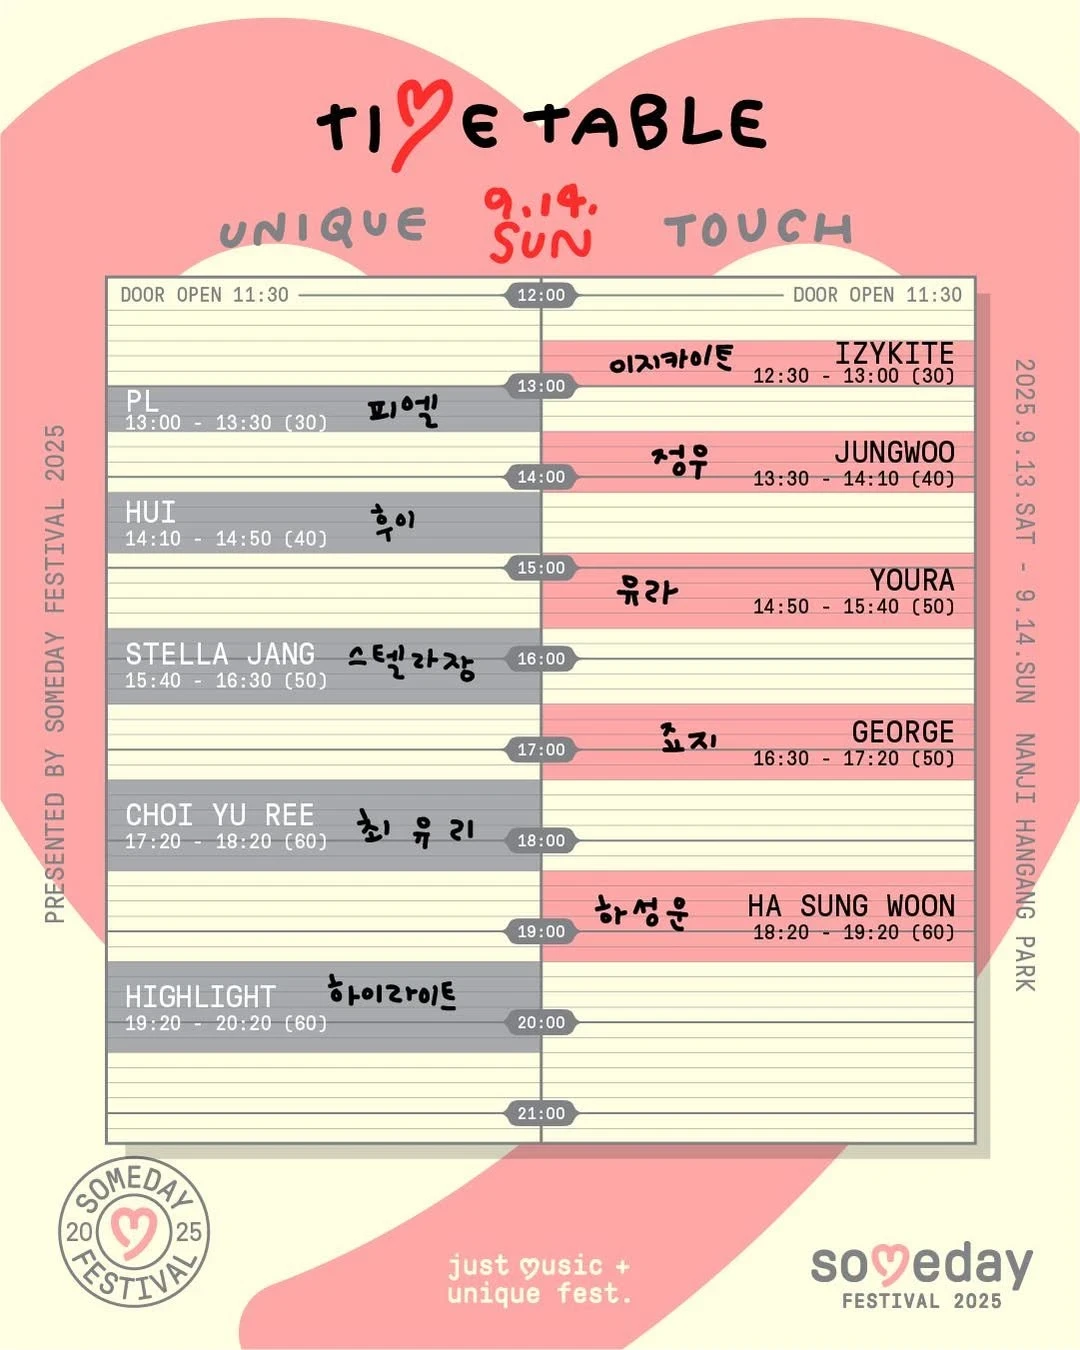 TIME TABLE
UNIQUE
9.14.
SUN
TOUCH
DOOR OPEN 11:30
12:00
DOOR OPEN 11:30
이지카이트
IZYKITE
12:30 - 13:00 (30)
13:00
PL
13:00 - 13:30 (30)
피엘
정우
JUNGWOO
13:30 - 14:10 (40)
14:00
HUI
14:10 - 14:50 (40)
후이
15:00
유라
YOURA
14:50 - 15:40 (50)
STELLA JANG
15:40 - 16:30 (50)
스텔라장
16:00
죠지
GEORGE
16:30 - 17:20 (50)
17:00
CHOI YU REE
17:20 - 18:20 (60)
최유리
18:00
하성운
HA SUNG WOON
18:20 - 19:20 (60)
19:00
HIGHLIGHT
19:20 - 20:20 (60)
하이라이트
20:00
21:00
PRESENTED BY SOMEDAY FESTIVAL 2025
2025.9.13.SAT - 9.14.SUN NANJI HANGANG PARK
SOMEDAY
20 25
FESTIVAL
just music +
unique fest.
someday
FESTIVAL 2025